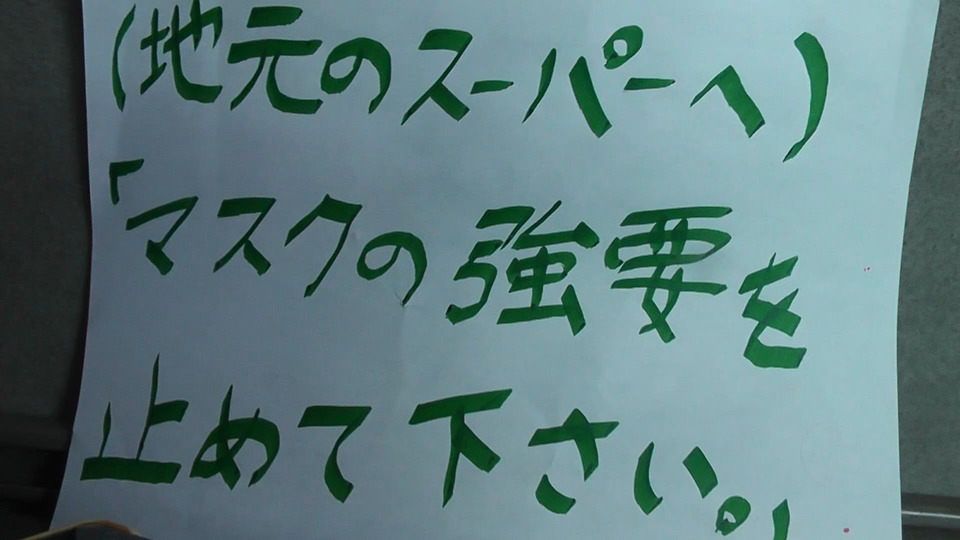 (地元のスーパーへ)
「マスクの強要を
止めて下さい。」